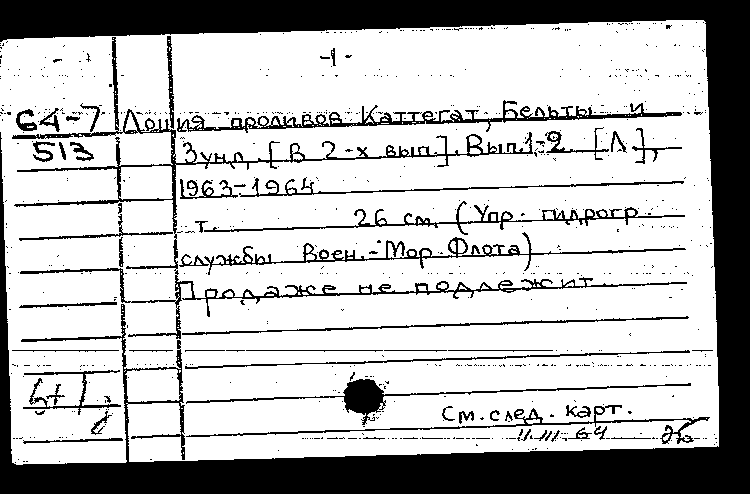 -1-
64-7 Лоция проливов Каттегат, Бельты и
513 Зунд. [В 2-х вып.]. Вып.1-2. [Л.],
1963-1964.
т. 26 см. (Упр. гидрогр.
службы Воен.-Мор. Флота)
Продаже не подлежит.
См. след. карт.
11.III.64